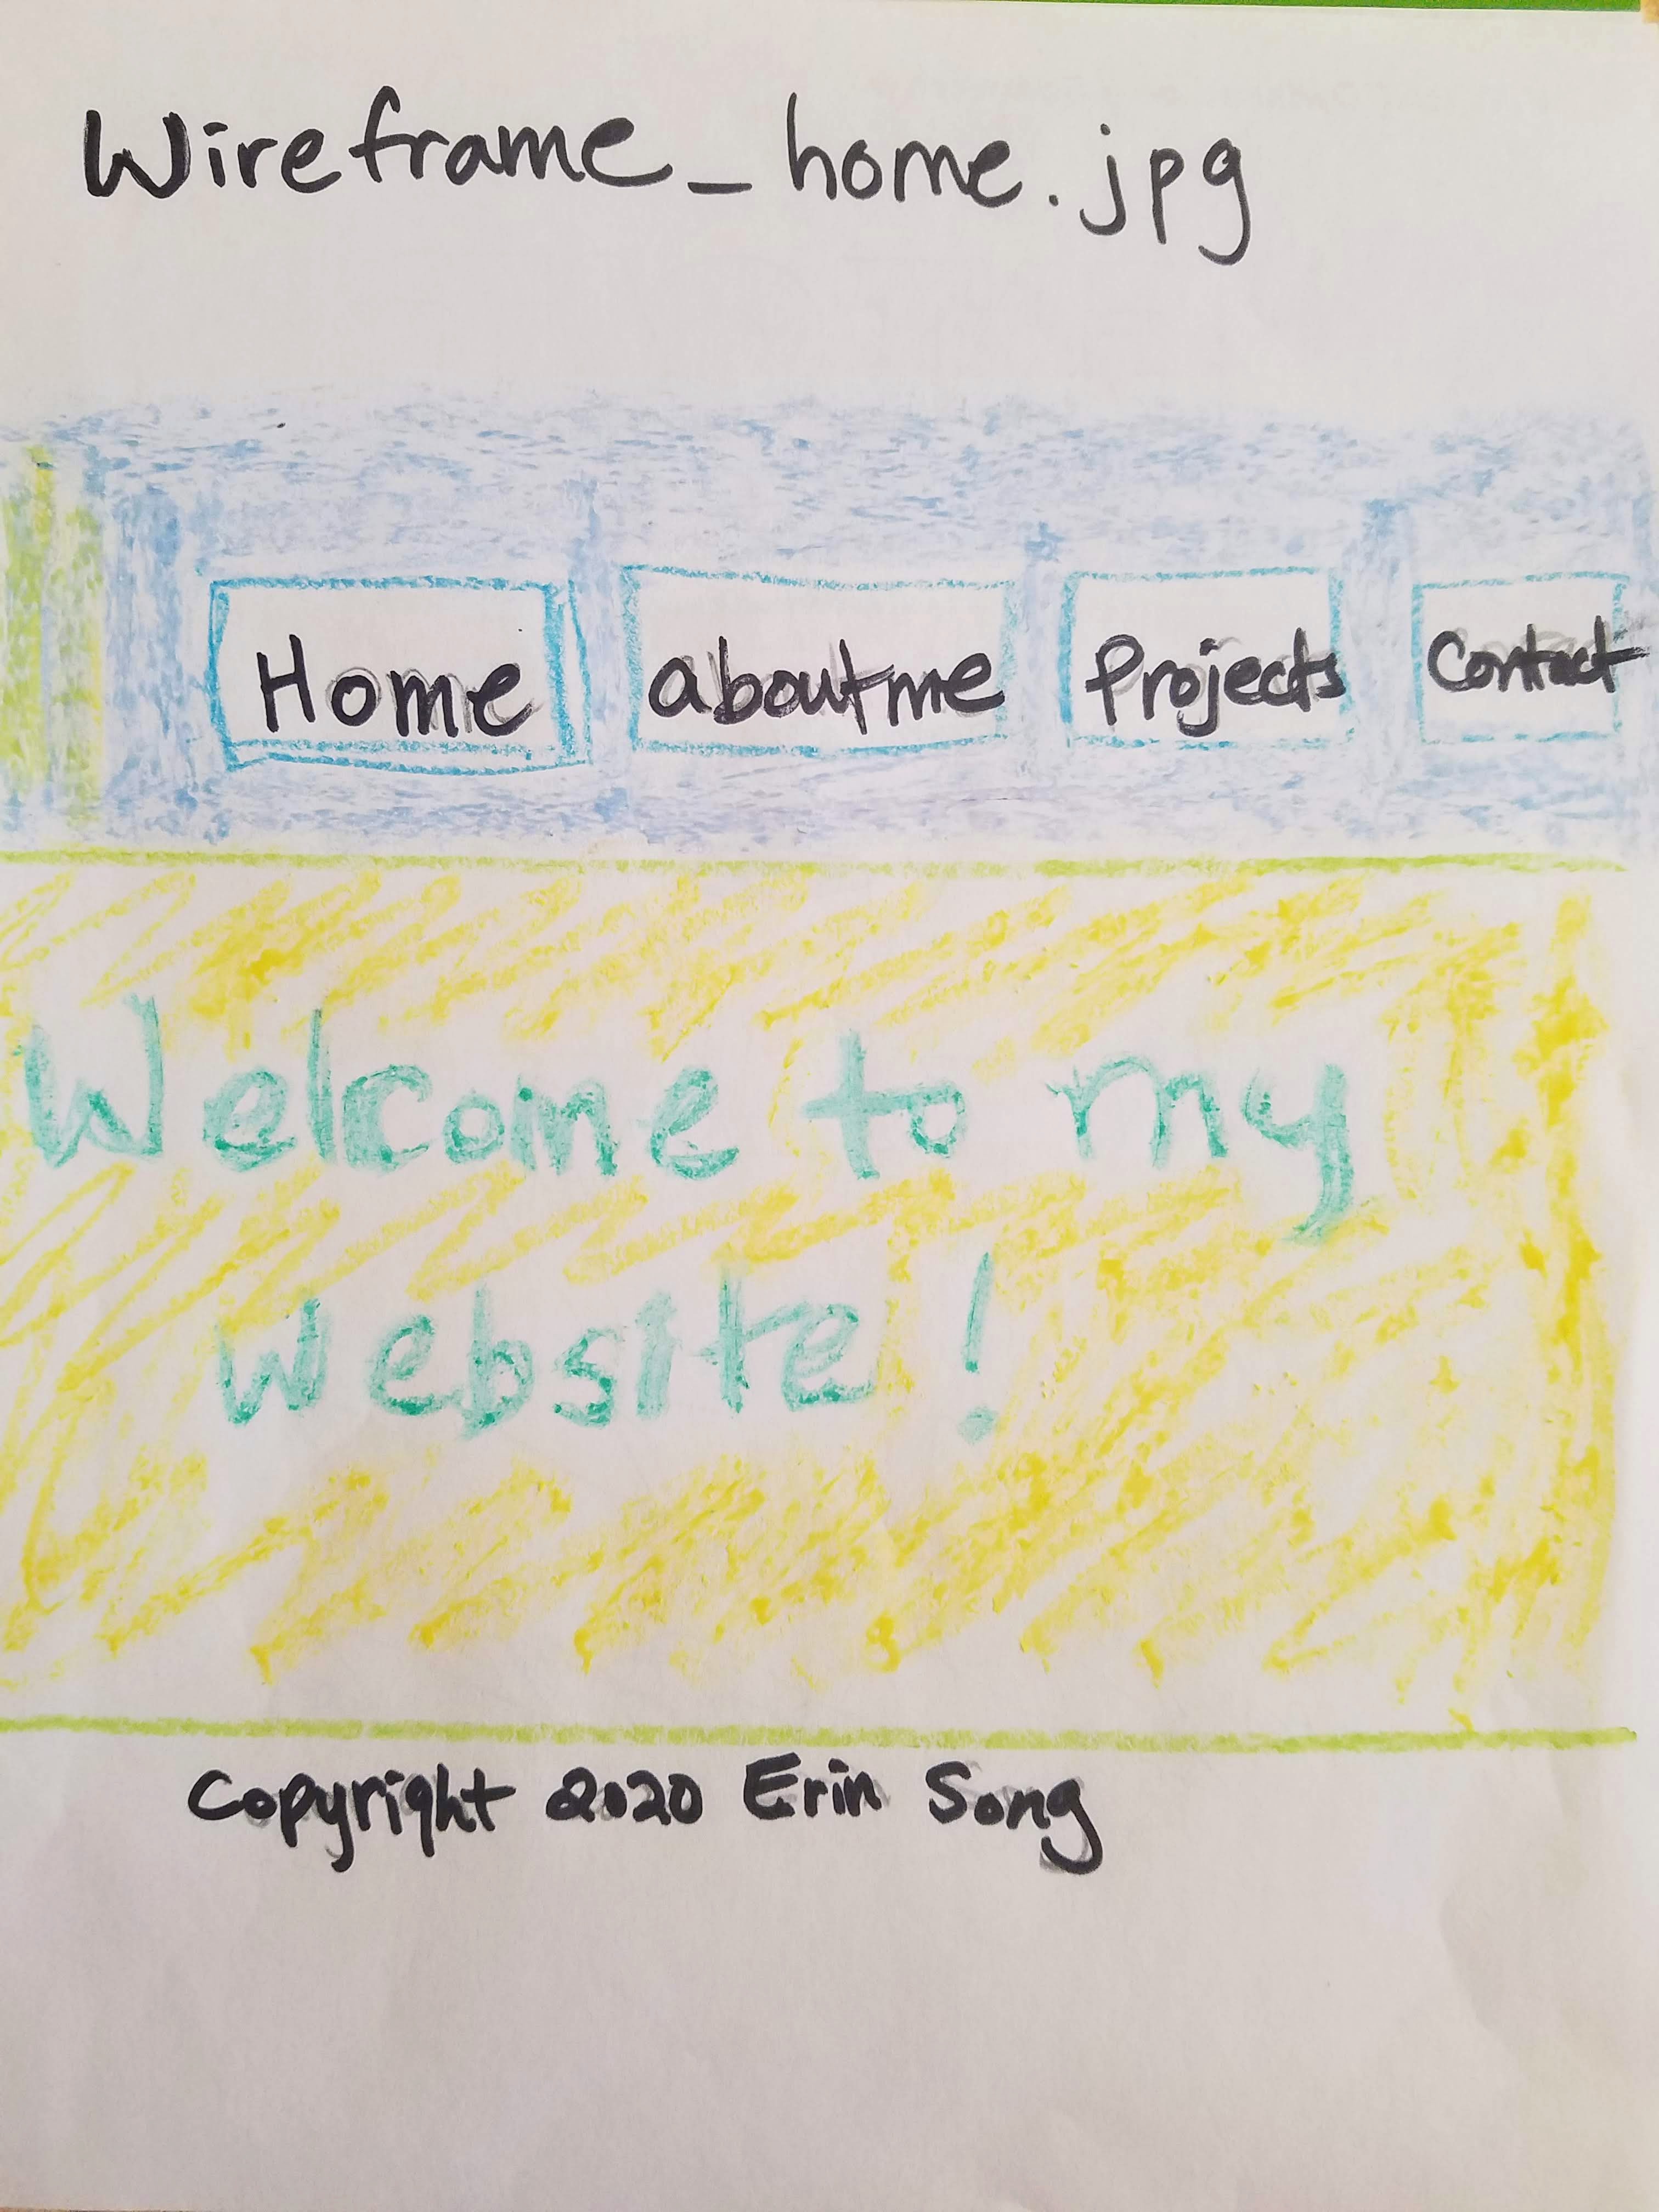 Wireframe_home.jpg
Home aboutme Projects Contact
Welcome to my
website!
Copyright 2020 Erin Song